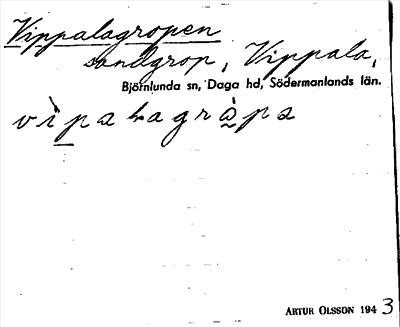 Vippalagropen
sandgrop, Vippala,
Björnlunda sn, Daga hd, Södermanlands län.
ARTUR OLSSON 1943